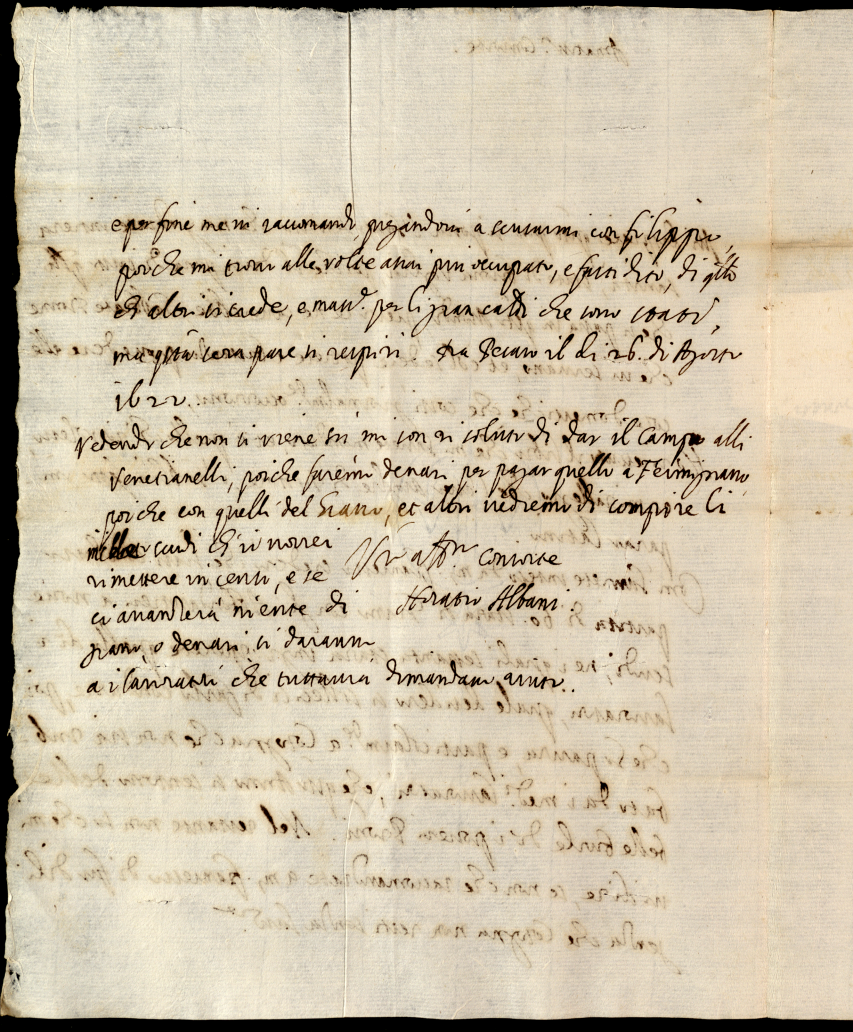 e per fine me vi raccomando, pregandovi a scusarmi con filippo,
poiche mi trovo alle volte assai piu occupato, e fastidito, di qllo
ch'altri si crede, e mass.e per li gran caldi che sono stati,
ma qsta sera pare si respiri Da Pesaro il di 26 di Agosto
1622.
Vedendo che non si viene sù mi son risoluto di dar il Campo alli
Venetianelli, poiche faremo denari per pagar quello a Fermignano
poiche con quelli del Grano, et altri vedremo di compire li
scudi ch'io vorrei
rimettere in censi, e se
ci avanzerà niente di
grano, o denari si daranno
a i lavoratori che tuttavia dimandano aiuto.
Vro aff.mo Consorte
Horatio Albani.